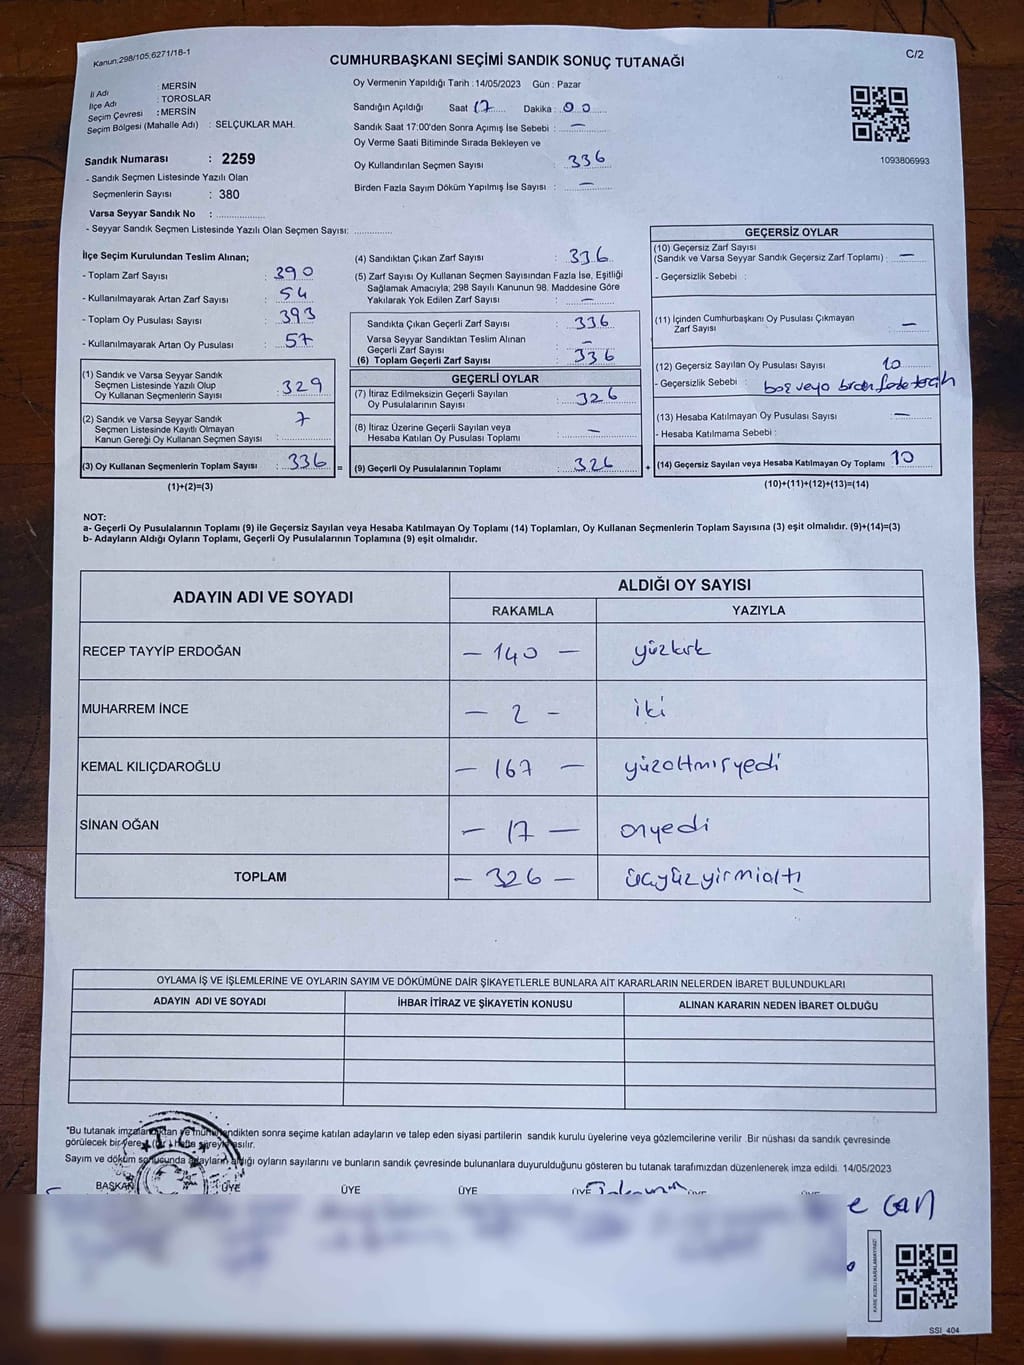 Kanun.298/105.6271/18-1
CUMHURBAŞKANI SEÇİMİ SANDIK SONUÇ TUTANAĞI
C/2
İl Adı : MERSİN
İlçe Adı : TOROSLAR
Seçim Çevresi : MERSİN
Seçim Bölgesi (Mahalle Adı) : SELÇUKLAR MAH.
Sandık Numarası : 2259
- Sandık Seçmen Listesinde Yazılı Olan
Seçmenlerin Sayısı : 380
Varsa Seyyar Sandık No :
- Seyyar Sandık Seçmen Listesinde Yazılı Olan Seçmen Sayısı:
Oy Vermenin Yapıldığı Tarih : 14/05/2023 Gün : Pazar
Sandığın Açıldığı Saat 17 Dakika : 00
Sandık Saat 17:00'den Sonra Açımış İse Sebebi : —
Oy Verme Saati Bitiminde Sırada Bekleyen ve
Oy Kullandırılan Seçmen Sayısı : 336
Birden Fazla Sayım Döküm Yapılmış İse Sayısı : —
1093806993
İlçe Seçim Kurulundan Teslim Alınan;
- Toplam Zarf Sayısı : 390
- Kullanılmayarak Artan Zarf Sayısı : 54
- Toplam Oy Pusulası Sayısı : 393
- Kullanılmayarak Artan Oy Pusulası : 57
(1) Sandık ve Varsa Seyyar Sandık
Seçmen Listesinde Yazılı Olup
Oy Kullanan Seçmenlerin Sayısı : 329
(2) Sandık ve Varsa Seyyar Sandık
Seçmen Listesinde Kayıtlı Olmayan
Kanun Gereği Oy Kullanan Seçmen Sayısı : 7
(3) Oy Kullanan Seçmenlerin Toplam Sayısı : 336 =
(1)+(2)=(3)
(4) Sandıktan Çıkan Zarf Sayısı : 336
(5) Zarf Sayısı Oy Kullanan Seçmen Sayısından Fazla İse, Eşitliği
Sağlamak Amacıyla; 298 Sayılı Kanunun 98. Maddesine Göre
Yakılarak Yok Edilen Zarf Sayısı : —
Sandıkta Çıkan Geçerli Zarf Sayısı : 336
Varsa Seyyar Sandıktan Teslim Alınan
Geçerli Zarf Sayısı : —
(6) Toplam Geçerli Zarf Sayısı : 336
GEÇERLİ OYLAR
(7) İtiraz Edilmeksizin Geçerli Sayılan
Oy Pusulalarının Sayısı : 326
(8) İtiraz Üzerine Geçerli Sayılan veya
Hesaba Katılan Oy Pusulası Toplamı : —
(9) Geçerli Oy Pusulalarının Toplamı : 326 +
GEÇERSİZ OYLAR
(10) Geçersiz Zarf Sayısı
(Sandık ve Varsa Seyyar Sandık Geçersiz Zarf Toplamı) : —
- Geçersizlik Sebebi :
(11) İçinden Cumhurbaşkanı Oy Pusulası Çıkmayan
Zarf Sayısı : —
(12) Geçersiz Sayılan Oy Pusulası Sayısı : 10
- Geçersizlik Sebebi : boş veya birden fazla tercih
(13) Hesaba Katılmayan Oy Pusulası Sayısı : —
- Hesaba Katılmama Sebebi :
(14) Geçersiz Sayılan veya Hesaba Katılmayan Oy Toplamı 10
(10)+(11)+(12)+(13)=(14)
NOT:
a- Geçerli Oy Pusulalarının Toplamı (9) ile Geçersiz Sayılan veya Hesaba Katılmayan Oy Toplamı (14) Toplamları, Oy Kullanan Seçmenlerin Toplam Sayısına (3) eşit olmalıdır. (9)+(14)=(3)
b- Adayların Aldığı Oyların Toplamı, Geçerli Oy Pusulalarının Toplamına (9) eşit olmalıdır.
ADAYIN ADI VE SOYADI ALDIĞI OY SAYISI
RAKAMLA YAZIYLA
RECEP TAYYİP ERDOĞAN — 140 — yüzkırk
MUHARREM İNCE — 2 — iki
KEMAL KILIÇDAROĞLU — 167 — yüzaltmışyedi
SİNAN OĞAN — 17 — onyedi
TOPLAM — 326 — üçyüzyirmialtı
OYLAMA İŞ VE İŞLEMLERİNE VE OYLARIN SAYIM VE DÖKÜMÜNE DAİR ŞİKAYETLERLE BUNLARA AİT KARARLARIN NELERDEN İBARET BULUNDUKLARI
ADAYIN ADI VE SOYADI İHBAR İTİRAZ VE ŞİKAYETİN KONUSU ALINAN KARARIN NEDEN İBARET OLDUĞU
"Bu tutanak imzalandıktan ve mühürlendikten sonra seçime katılan adayların ve talep eden siyasi partilerin sandık kurulu üyelerine veya gözlemcilerine verilir .Bir nüshası da sandık çevresinde
görülecek bir yere (bir) hafta süreyle asılır.
Sayım ve döküm sonucunda adayların aldığı oyların sayılarını ve bunların sandık çevresinde bulunanlara duyurulduğunu gösteren bu tutanak tarafımızdan düzenlenerek imza edildi. 14/05/2023
BAŞKAN ÜYE ÜYE ÜYE ÜYE ÜYE
T.C.
e can
KARE KODU KARALAMAYINIZ!
SSI_404